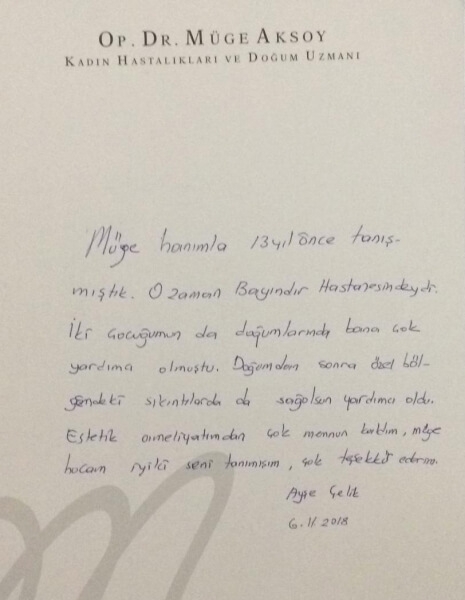 OP. DR. MÜGE AKSOY
KADIN HASTALIKLARI VE DOĞUM UZMANI
Müge hanımla 13 yıl önce tanış-
mıştık. O zaman Bayındır Hastanesindeydi.
İki çocuğumun da doğumlarında bana çok
yardımcı olmuştu. Doğumdan sonra özel böl-
gemdeki sıkıntılarda da sağolsun yardımcı oldu.
Estetik ameliyatımdan çok memnun kaldım, müge
hocam iyiki seni tanımışım, çok teşekkür ederim.
Ayşe Çelik
6.11.2018